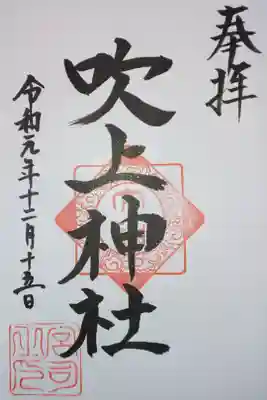 奉拝
吹上神社
令和元年十二月十五日